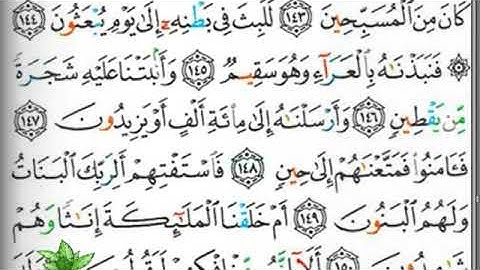 كَانَ مِنَ ٱلْمُسَبِّحِينَ ١٤٣ لَلَبِثَ فِى بَطْنِهِۦٓ إِلَىٰ يَوْمِ يُبْعَثُونَ ١٤٤
۞ فَنَبَذْنَٰهُ بِٱلْعَرَآءِ وَهُوَ سَقِيمٌ ١٤٥ وَأَنۢبَتْنَا عَلَيْهِ شَجَرَةً
مِّن يَقْطِينٍ ١٤٦ وَأَرْسَلْنَٰهُ إِلَىٰ مِا۟ئَةِ أَلْفٍ أَوْ يَزِيدُونَ ١٤٧
فَـَٔامَنُوا۟ فَمَتَّعْنَٰهُمْ إِلَىٰ حِينٍ ١٤٨ فَٱسْتَفْتِهِمْ أَلِرَبِّكَ ٱلْبَنَاتُ
وَلَهُمُ ٱلْبَنُونَ ١٤٩ أَمْ خَلَقْنَا ٱلْمَلَٰٓئِكَةَ إِنَٰثًا وَهُمْ
شَٰهِدُونَ ١٥٠ أَلَآ إِنَّهُم مِّنْ إِفْكِهِمْ لَيَقُولُونَ